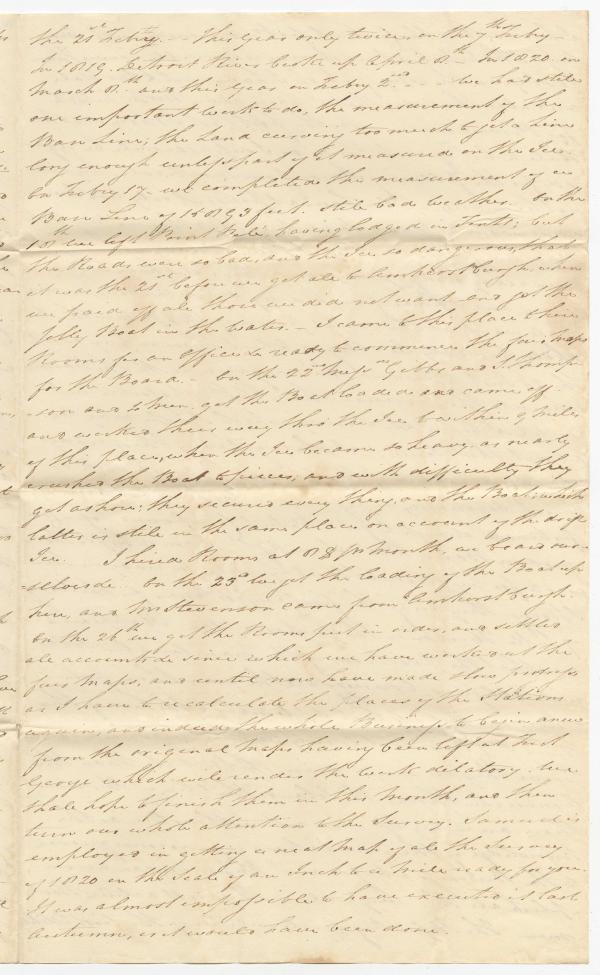 the 21st Feby. - This Year only twice, on the 7th Feby -
In 1819. Detroit River broke up April 8th - In 1820 on
March 8th and this Year on Feby 2nd. - - we had still
one important work to do, the measurement of the
Base Line; the Land curving too much to get a Line
long enough unless part of it measured on the Ice -
On Feby 17 - we completed the measurement of a
Base Line of 15893 feet. still bad weather. On the
18th we left Point Pelé, having lodged in Tents; but
the Roads were so bad, and the Ice so dangerous, that
it was the 21st before we got all to Amherstburgh, when
we paid off all those we did not want and got the
Jolly Boat in the Water. - I came to this place to hire
Rooms for an Office & ready to commence the four Maps
for the Board. - On the 22nd Messrs Gibbs and S. Thomp
-son and 4 Men got the Boat loaded and came off
and worked their way thro the Ice to within 9 Miles
of this place, when the Ice became so heavy, as nearly
crushed the Boat to pieces, and with difficulty they
got ashore; they secured every thing, and the Boat; which
latter is still in the same place on account of the drift
Ice. I hired Rooms at 8$ pr Month, we board our-
=selves &c. On the 23d we got the loading of the Boat up
here, and Mr Stevenson came from Amherstburgh.
On the 26th we got the Rooms put in order, and settled
all accounts &c since which we have worked at the
four Maps, and until now have made slow progress
as I have to recalculate the places of the Stations
again, and indeed the whole Business to begin anew
from the original Maps having been left at Fort
George which will render the work dilatory. We
shall hope to finish them in this Month, and then
turn our whole attention to the Survey. Samuel is
employed in getting a neat Map of all the Survey
of 1820 on the Scale of an Inch to a Mile ready for you.
It was almost impossible to have executed it last
Autumn, or it would have been done.